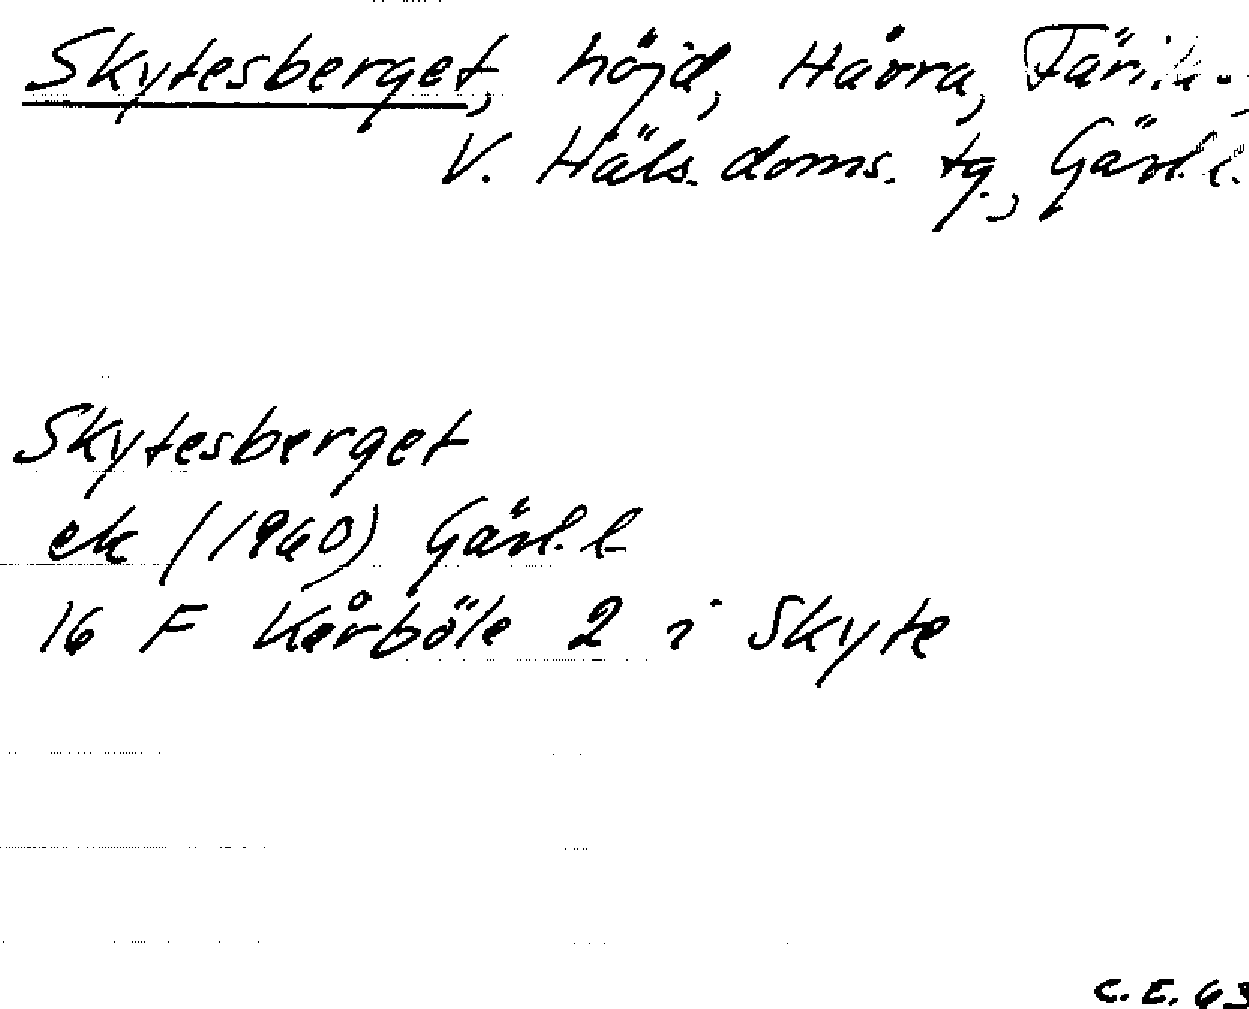 Skytesberget, höjd, Håvra, Färila,
V. Häls. doms. tg., Gävl. l.
Skytesberget
ek (1960) Gävl. l.
16 F Kårböle 2 i Skyte
C. E. 63